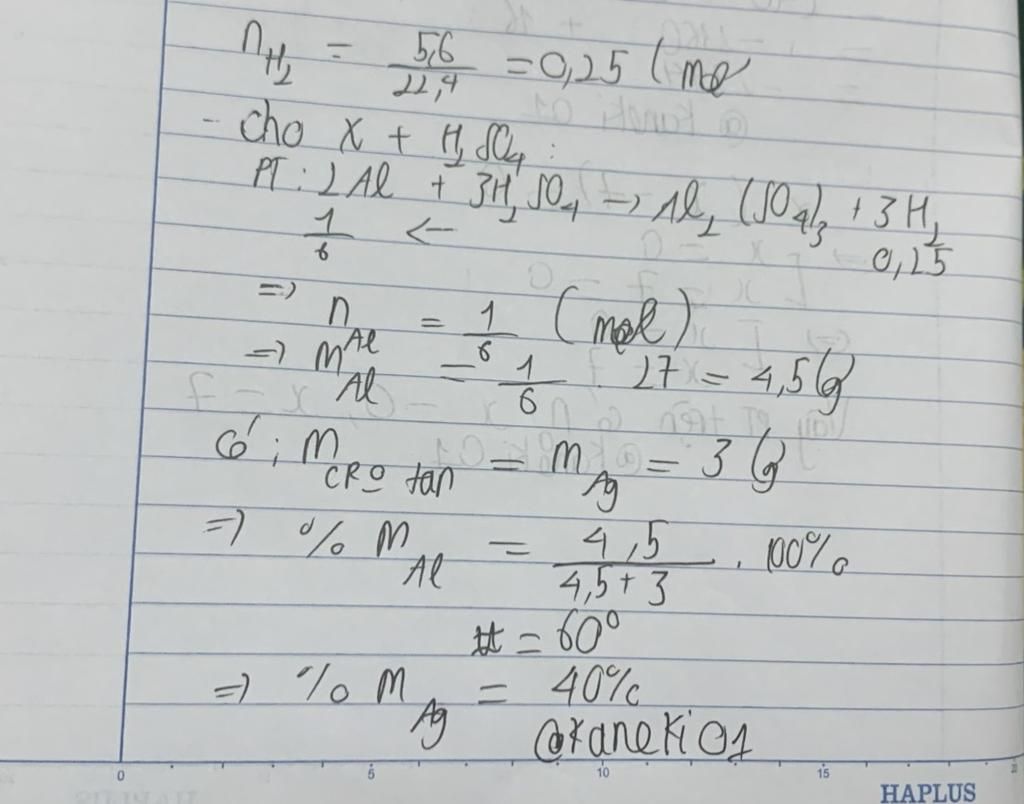 n_H2 = 5,6 / 22,4 = 0,25 (mol
- Cho X + H2SO4 :
PT : 2Al + 3H2SO4 → Al2(SO4)3 + 3H2
1/6 ← 0,25
=> n_Al = 1/6 (mol)
=> m_Al = 1/6 . 27 = 4,5 (g)
Có ; m_CR o tan = m_Ag = 3 (g)
=> % m_Al = 4,5 / 4,5 + 3 . 100%
= 60°
=> % m_Ag = 40%
@kaneki01
0 5 10 15
HAPLUS